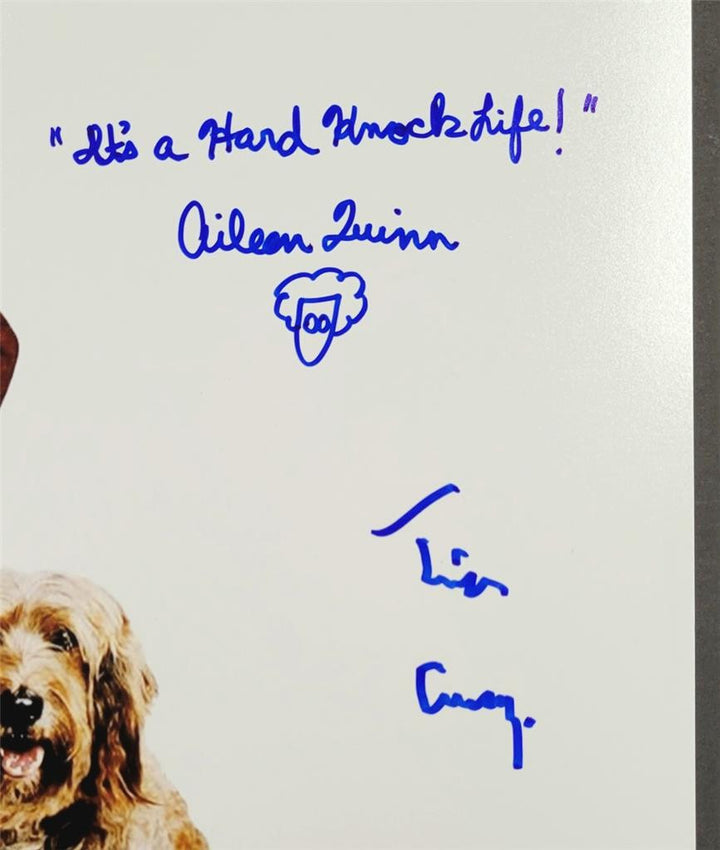 "It's a Hard Knock Life!"
Aileen Quinn
Tim
Curry.